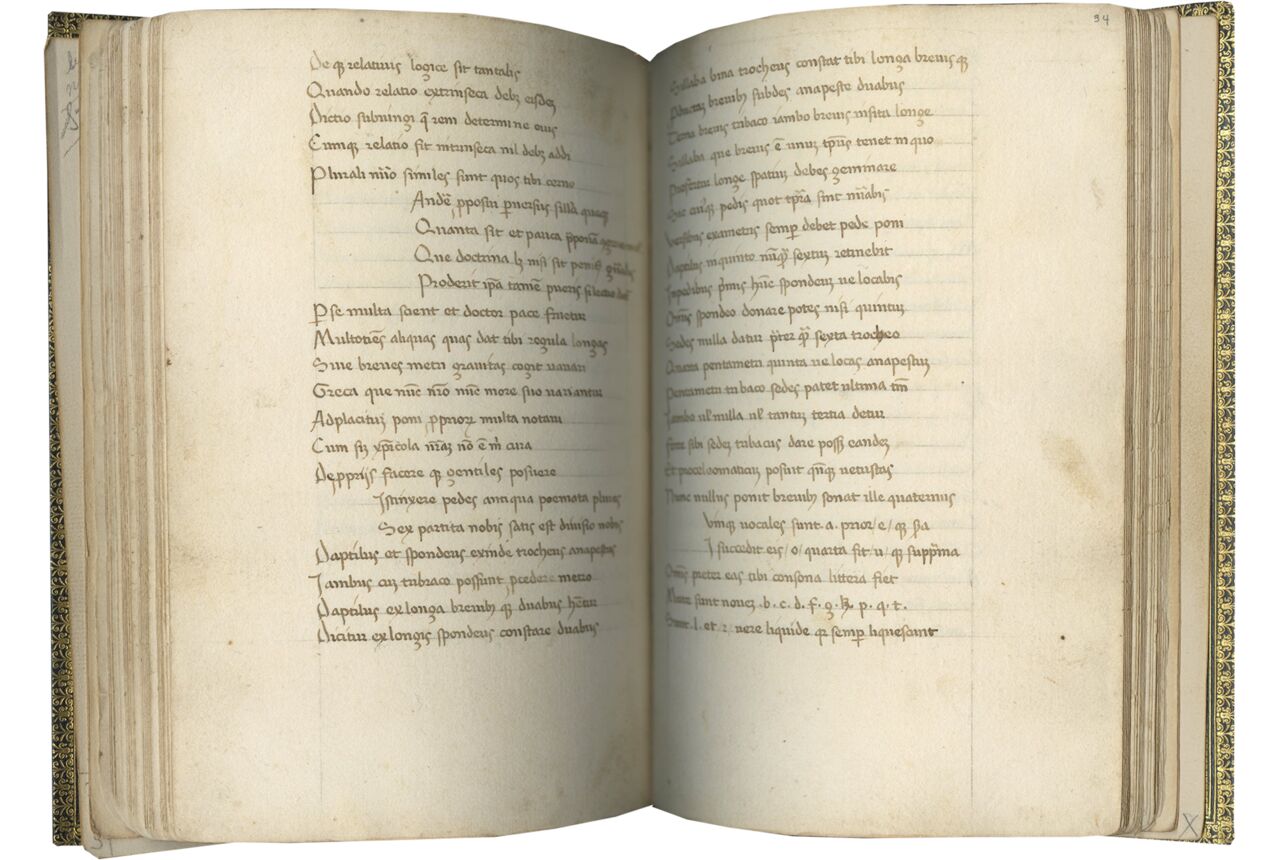 De q̨ relativis logice sit tantalis
Quando relatio extrinseca debꝫ eisdeꝫ
Dictio subiungi q̄ rem determine eius
Cumqꝫ relatio sit intrinseca nil debꝫ addi
Plurali nūo similes sunt quos tibi cerno
Andē ꝓpositi ꝑversus silla queqꝫ
Quanta sit et pauca p̄ponā
Que doctrina lꝫ nisi sit
Proderit ip̄a tamē pueris
Per se multa scient et doctor pace fruetur
Multotiēs aliquas quas dat tibi regula longas
Sive breves metri gravitas cogit variari
Greca que nūc nr̄o nūc more suo variantur
Adplacituꝫ poni ꝓprioꝝ multa notavi
Cum siꝫ xp̄icola nr̄aꝫ nō ē m̄ cura
Deꝓprijs facere q̨ gentiles posuere
Istinxere pedes antiqua poemata plures
Sex partita nobis satis est divisio nobis
Daptilus et spondeus exinde trocheus anapestus
Iambus cuꝫ tribraco possunt p̄cedere metro
Daptilus ex longa brevibꝫ q̨ duabus hētur
Dicitur ex longis spondeus constare duabus
34
Sillaba bina trocheus constat tibi longa brevis qꝫ
brevibꝫ subdes anapeste duabus
Terna brevis tribaco iambo brevis insita longe
Sillaba que brevis ē unuꝫ tp̄us tenet in quo
longe spatiuꝫ debes geminare
pedis quot tp̄ra sint
Versibus exametris semꝑ debet pede poni
Daptilus in quinto nūq̄ꝫ sextuꝫ retinebit
Inpedibus p̄mis hūc spondeuꝫ ve locabis
Omīs spondeo donare potes nisi quintuꝫ
Sedes nulla datur p̄ter q̄ꝫ sexta trocheo
pentametri quinta ve locas anapestuꝫ
Pentametri tribaco sedes patet ultima tm̄
Iambo ul̄ nulla ul̄ tantuꝫ tertia detur
Ferre sibi sedeꝫ tribacus dare possꝫ eandeꝫ
Et proceleomaticuꝫ posuit qn̄qꝫ vetustas
Nunc nullus ponit brevibꝫ sonat ille quaternis
Vinqꝫ vocales sunt .a. prior/e/ qꝫ s̄a
I succedit eis /o/ quarta fit /u/ qꝫ supp̄ma
Omīs preter eas tibi consona littera fiet
Mute sunt noveꝫ .b. c. d. f. g. k. p. q. t.
Sunt .l. et .r. vere liquide qꝛ semꝑ liquescunt
X